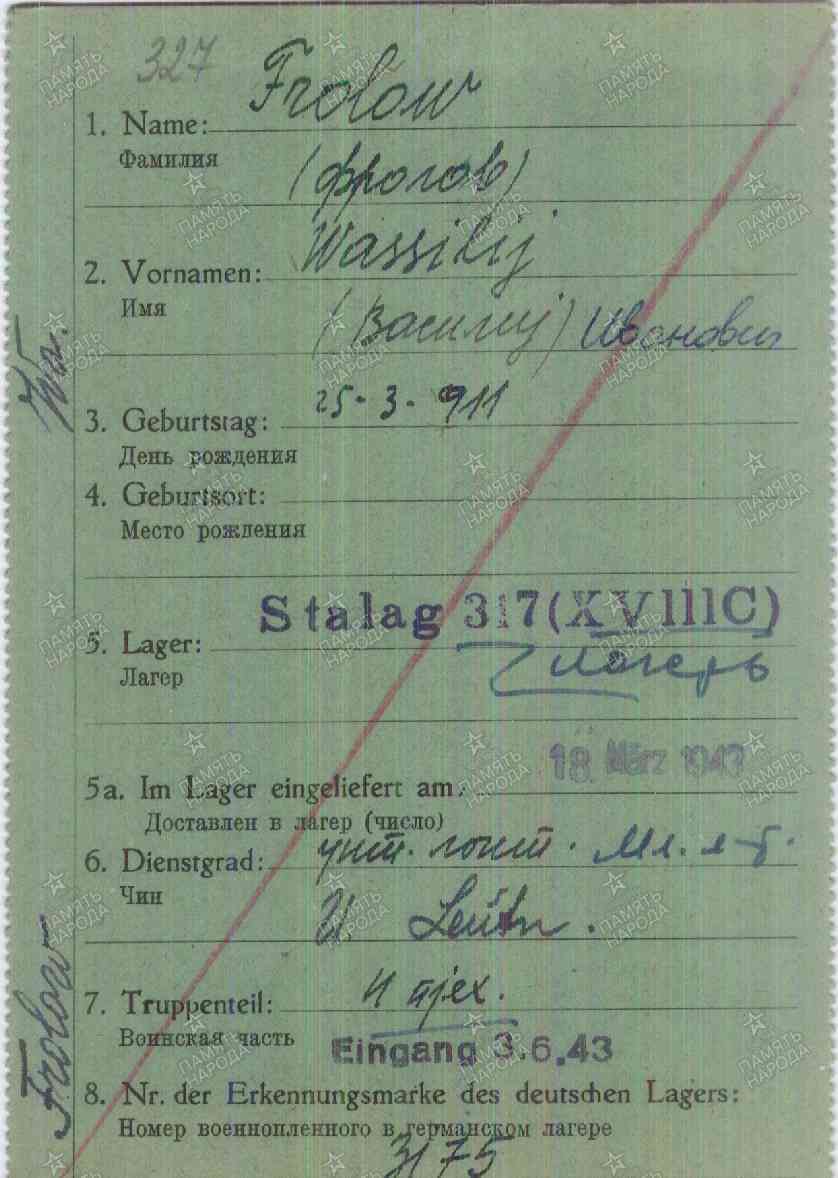 327
Frolow
1. Name:
Фамилия
(Фролов)
Wassilij
2. Vornamen:
Имя
(Василиj) Иванович
Wa.
25-3-911
3. Geburtstag:
День рождения
4. Geburtsort:
Место рождения
Stalag 317(XVIIIC)
5. Lager:
Лагер
лагерь
18. März 1943
5a. Im Lager eingeliefert am:
Доставлен в лагер (число)
6. Dienstgrad: Мл. л-т.
Чин
U. Leutn.
7. Truppenteil:
Воинская часть
Eingang 3.6.43
Frolow
8. Nr. der Erkennungsmarke des deutschen Lagers:
Номер военнопленного в германском лагере
3175
ПАМЯТЬ НАРОДА